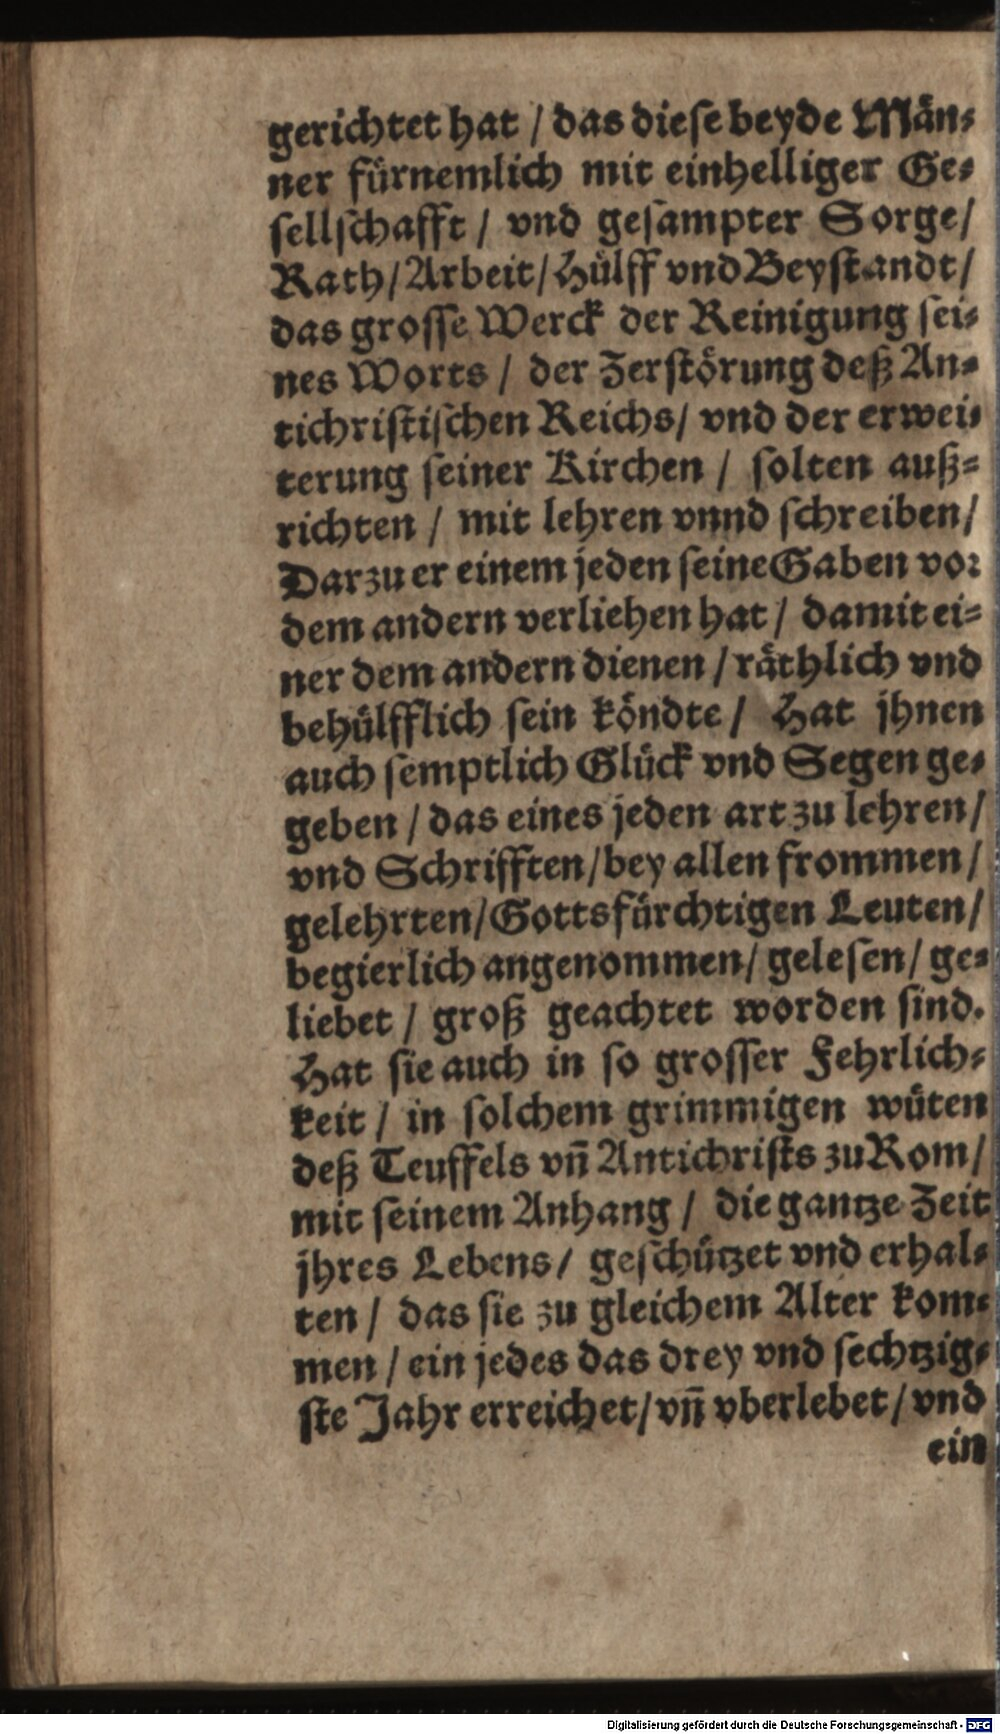 gerichtet hat / das diese beyde Män-
ner fürnemlich mit einhelliger Ge-
sellschafft / vnd gesampter Sorge /
Rath / Arbeit / Hülff vnd Beystandt /
das grosse Werck der Reinigung sei-
nes Worts / der Zerstörung deß An-
tichristischen Reichs / vnd der erwei-
terung seiner Kirchen / solten auß-
richten / mit lehren vnnd schreiben /
Darzu er einem jeden seine Gaben vor
dem andern verliehen hat / damit ei-
ner dem andern dienen / räthlich vnd
behülfflich sein köndte / Hat jhnen
auch semptlich Glück vnd Segen ge-
geben / das eines jeden art zu lehren /
vnd Schrifften / bey allen frommen /
gelehrten / Gottsfürchtigen Leuten /
begierlich angenommen / gelesen / ge-
liebet / groß geachtet worden sind.
Hat sie auch in so grosser Fehrlich-
keit / in solchem grimmigen wüten
deß Teuffels vñ Antichrists zu Rom /
mit seinem Anhang / die gantze Zeit
jhres Lebens / geschützet vnd erhal-
ten / das sie zu gleichem Alter kom-
men / ein jedes das drey vnd sechtzig-
ste Jahr erreichet / vñ vberlebet / vnd
ein
Digitalisierung gefördert durch die Deutsche Forschungsgemeinschaft - DFG